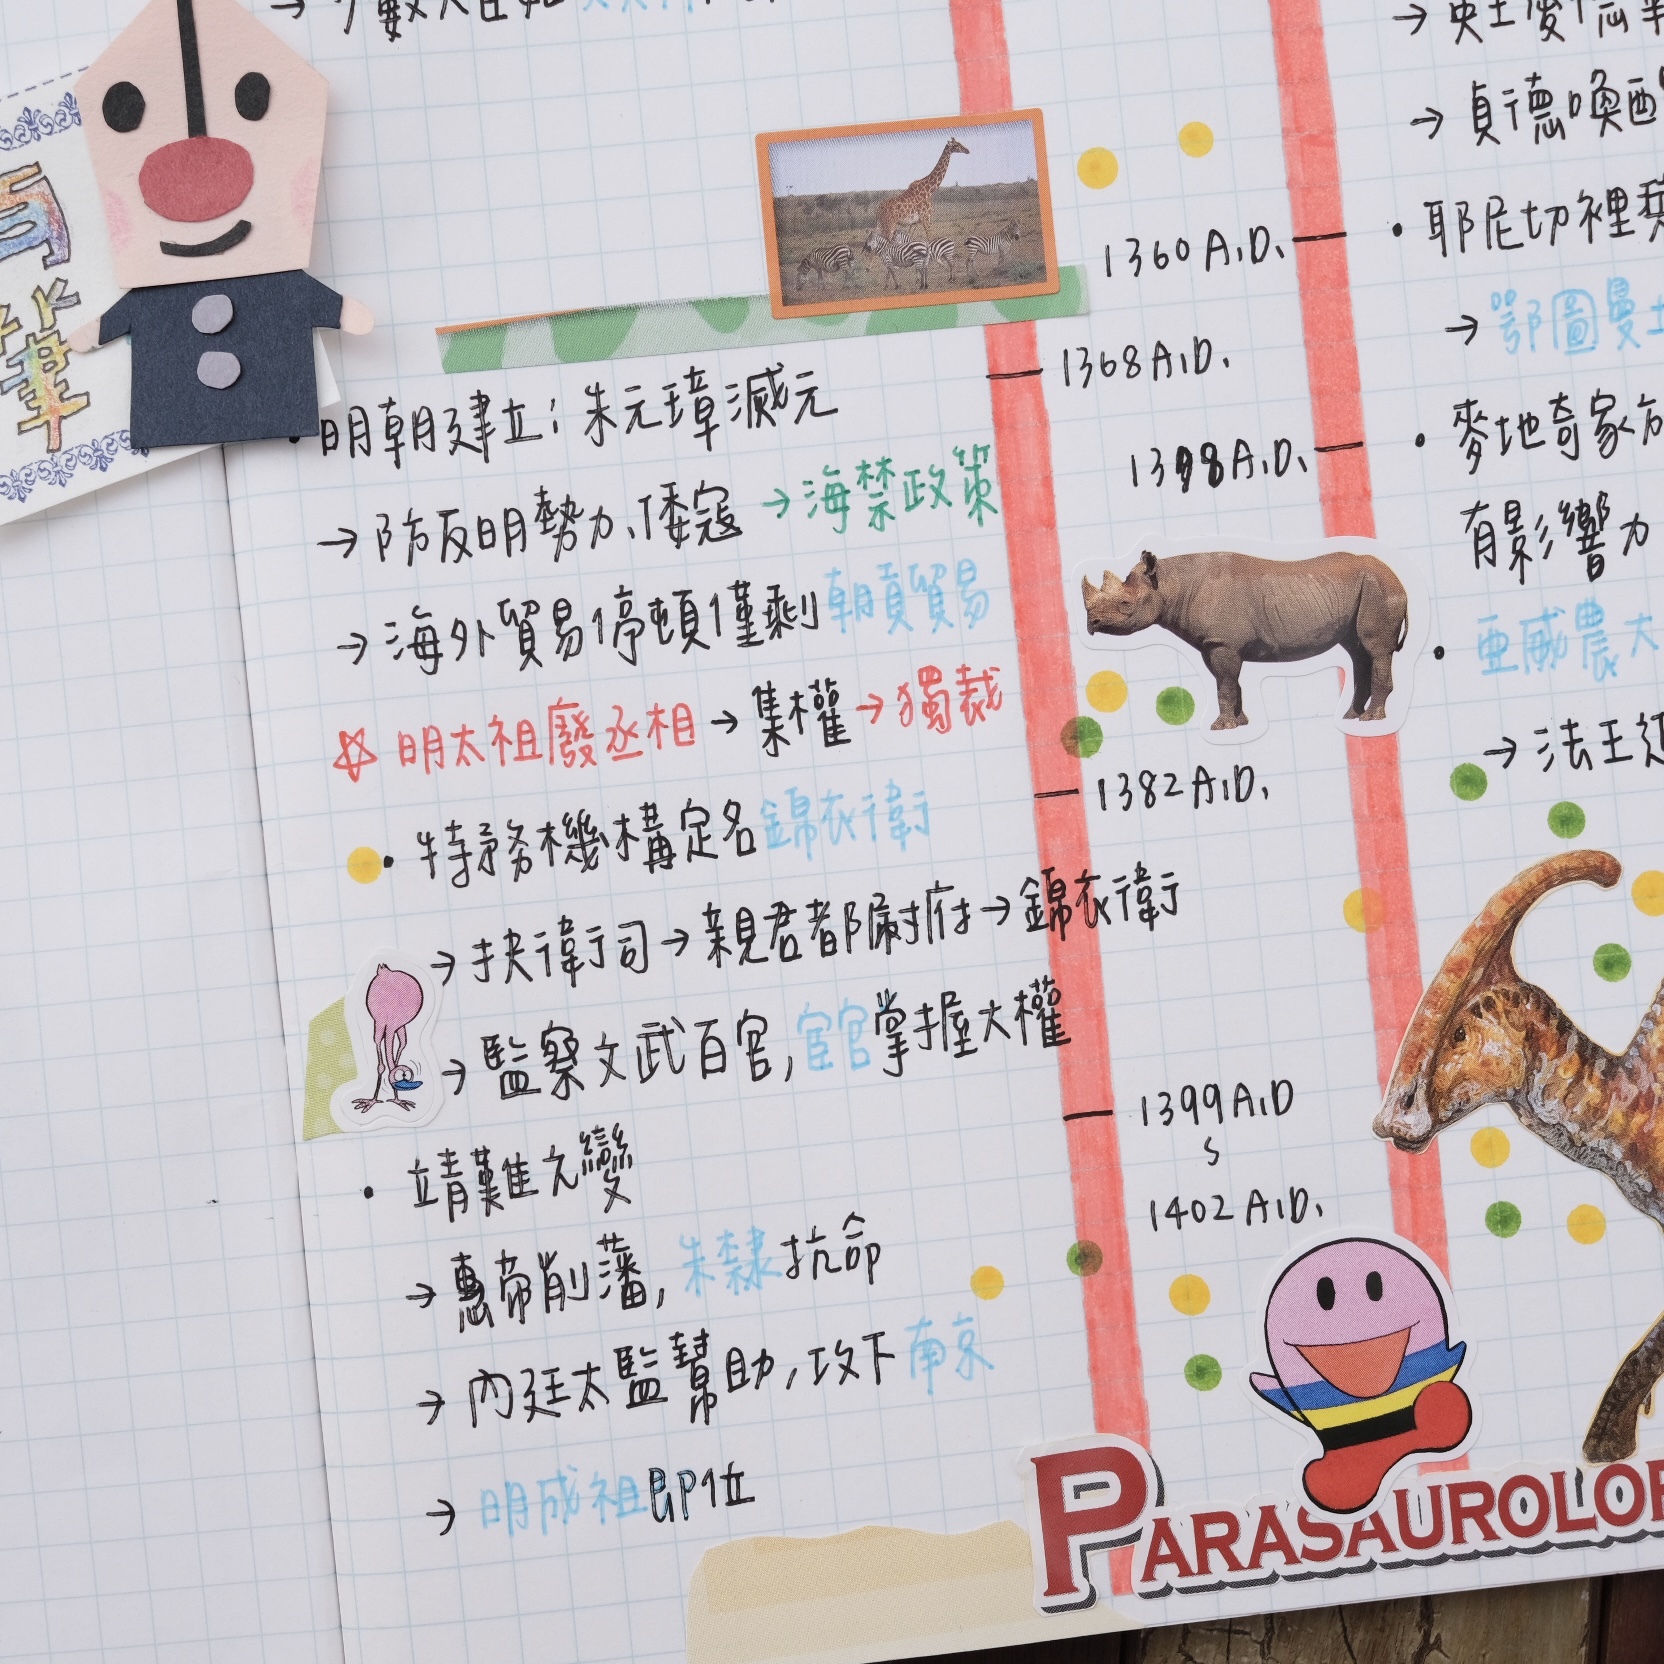 1360 A.D.
1368 A.D.
明朝建立：朱元璋滅元
→防反明勢力、倭寇→海禁政策
→海外貿易停頓僅剩朝貢貿易
☆明太祖廢丞相→集權→獨裁
1382 A.D.
• 特務機構定名錦衣衛
→抰衛司→親君都尉府→錦衣衛
→監察文武百官,宦官掌握大權
1399 A.D
1402 A.D.
• 靖難之變
→惠帝削藩,朱隸抗命
→內廷太監幫助,攻下南京
→明成祖即位
1398 A.D.
→貞德喚醒
• 耶尼切裡
→鄂圖曼土
• 麥地奇家
有影響力
• 亞威農大
→法王
PARASAUROLO